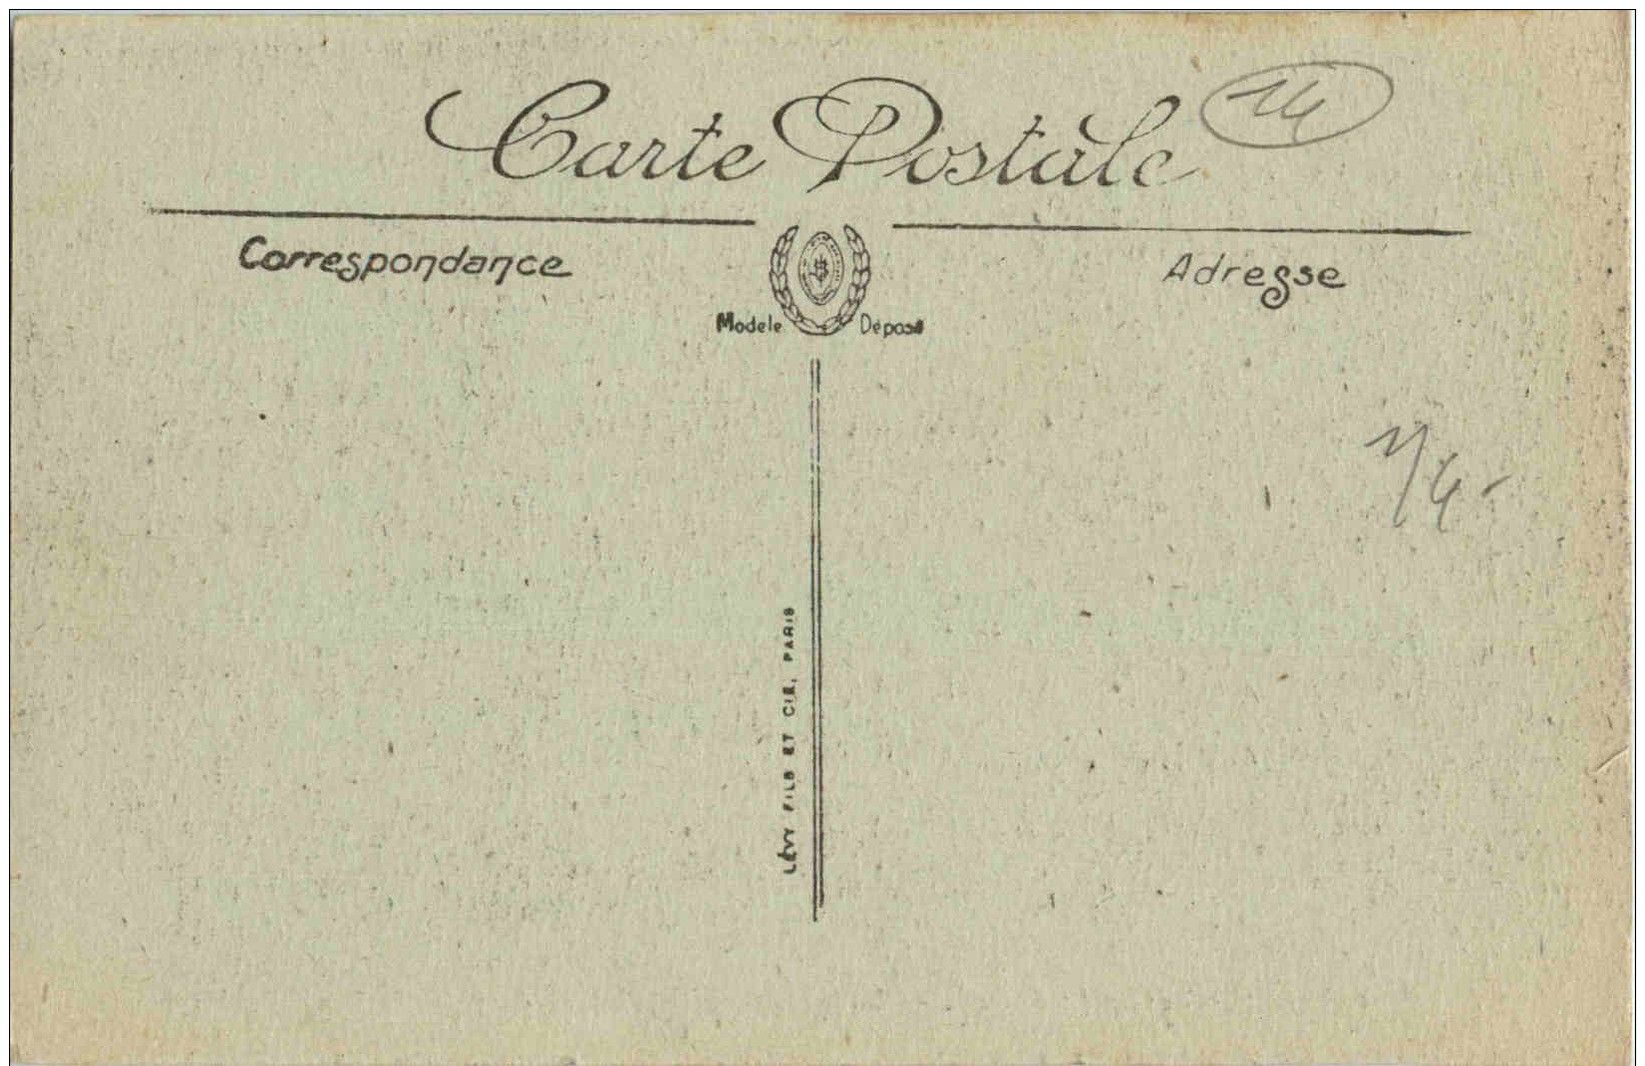 Carte Postale
14
Correspondance
Adresse
Modele Déposé
LÉVY FILS ET CIE, PARIS